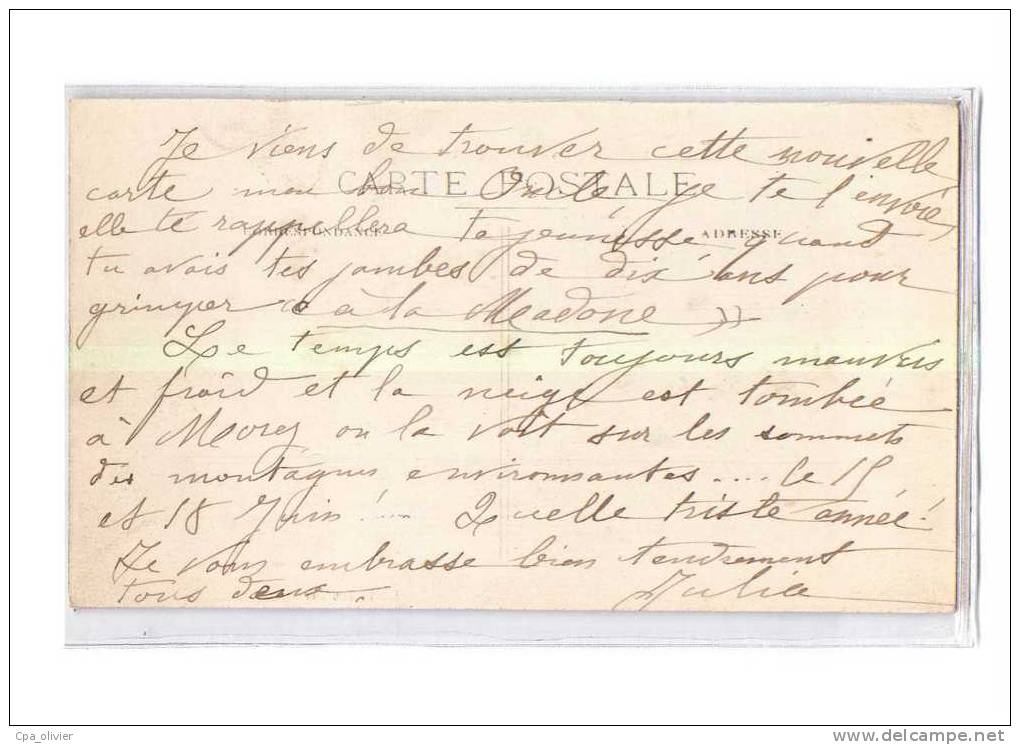 Je viens de trouver cette nouvelle
carte mon bon Oncle, je te l'envoie,
CARTE POSTALE
elle te rappellera ta jeunesse quand
CORRESPONDANCE
ADRESSE
tu avais tes jambes de dix ans pour
grimper à à la Madone »
Le temps est toujours mauvais
et froid et la neige est tombée
à Morez on la voit sur les sommets
des montagnes environnantes.... le 15
et 18 Juin! ... Quelle triste année!
Je vous embrasse bien tendrement
tous deux. Julia
Cpa_olivier
www.delcampe.net